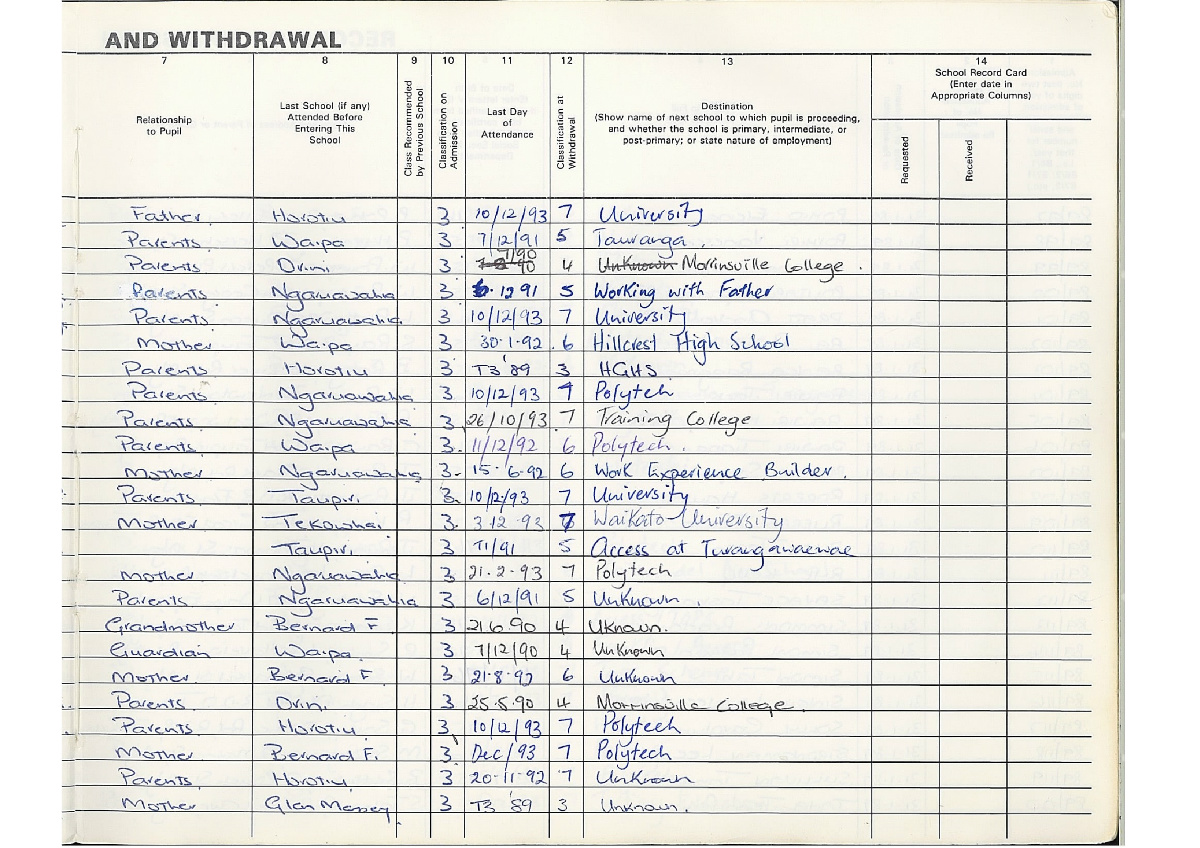 AND WITHDRAWAL
7 8 9 10 11 12 13 14
Relationship to Pupil
Last School (if any) Attended Before Entering This School
Class Recommended by Previous School
Classification on Admission
Last Day of Attendance
Classification at Withdrawal
Destination
(Show name of next school to which pupil is proceeding, and whether the school is primary, intermediate, or post-primary; or state nature of employment)
School Record Card
(Enter date in Appropriate Columns)
Requested
Received
Father Horotiu 3 10/12/93 7 University
Parents Waipa 3 7/12/91 5 Tauranga.
Parents Orini 3 7/90 4 Unknown Morrinsville College.
Parents Ngaruawahia 3 6.12 91 5 Working with Father
Parents Ngaruawahia 3 10/12/93 7 University
Mother Waipa 3 30.1.92 6 Hillcrest High School
Parents Horotiu 3 T3 '89 3 HGHS.
Parents Ngaruawahia 3 10/12/93 7 Polytech
Parents Ngaruawahia 3 26/10/93 7 Training College
Parents Waipa 3. 11/12/92 6 Polytech.
Mother Ngaruawahia 3. 15.6.92 6 Work Experience Builder.
Parents Taupiri 3. 10/12/93 7 University
Mother Tekowhai 3. 3 12.93 7 Waikato-University
Taupiri 3 T1/91 5 Access at Turangawaewae
Mother Ngaruawahia 3 21.2.93 7 Polytech
Parents Ngaruawahia 3 6/12/91 5 UnKnown.
Grandmother Bernard F 3 21.6.90 4 Uknown.
Guardian Waipa. 3 7/12/90 4 UnKnown
Mother Bernard F. 3 21.8.92 6 UnKnown
Parents Orini 3 25.5.90 4 Morrinsville College.
Parents Horotiu 3 10/12/93 7 Polytech
Mother Bernard F. 3 Dec/93 7 Polytech
Parents Horotiu 3 20-11-92 7 UnKnown
Mother Glen Massey 3 T3 '89 3 Unknown.